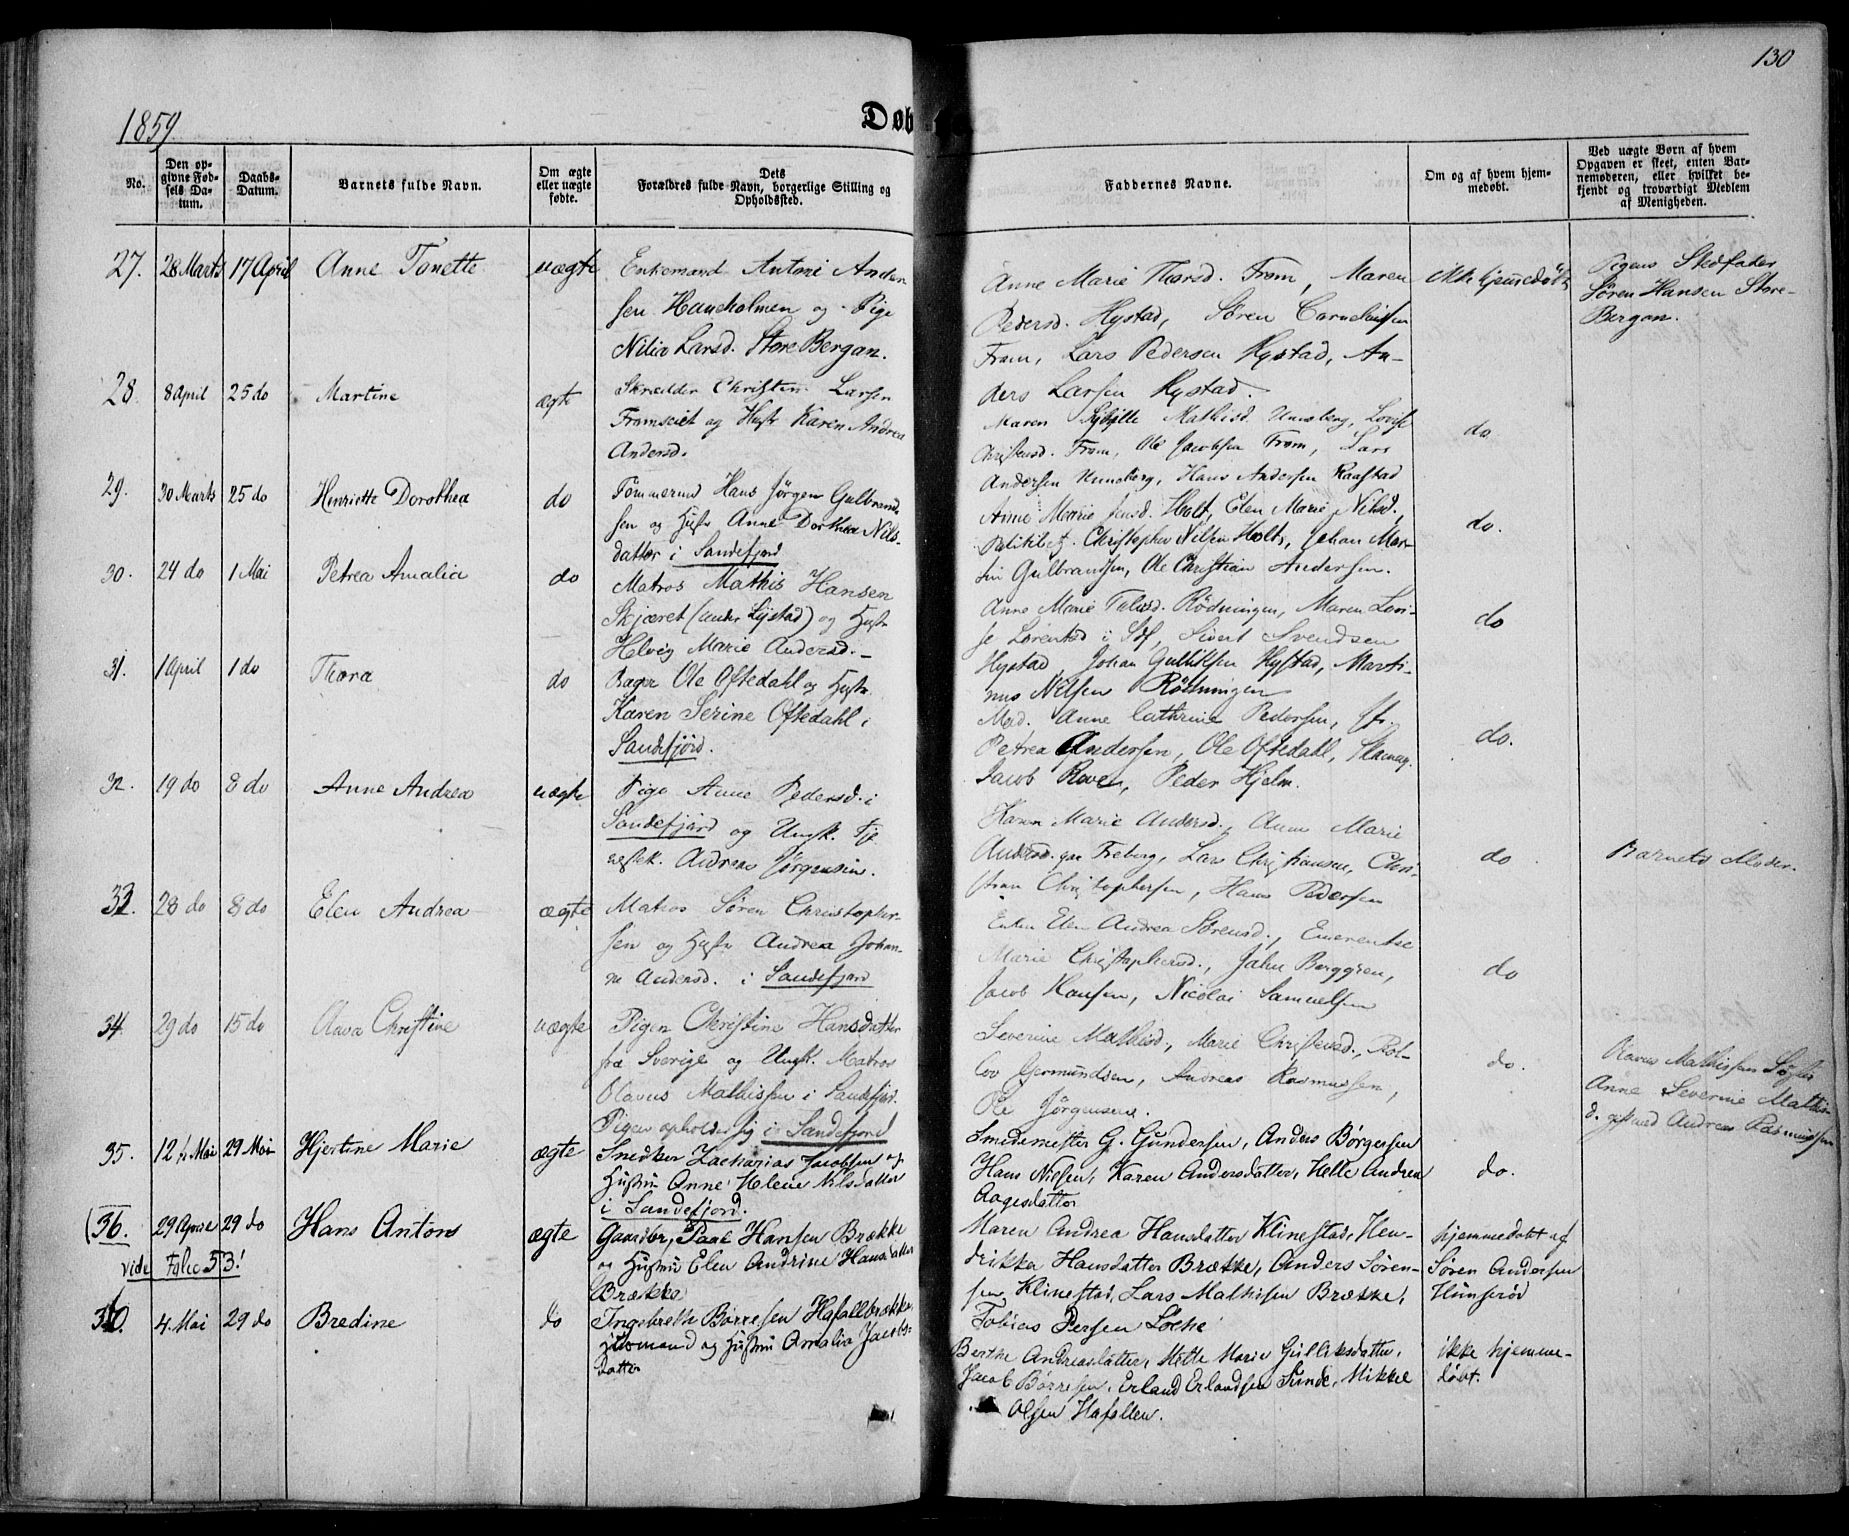 130
1859
Døb
No.
Den op-
givne Fød-
sels Da-
tum.
Daabs-
Datum.
Barnets fulde Navn.
Om ægte
eller uægte
fødte.
Dets
Forældres fulde Navn, borgerlige Stilling og
Opholdssted.
Faddernes Navne.
Om og af hvem hjem-
medøbt.
Ved uægte Børn af hvem
Opgaven er skeet, enten Bar-
nemoderen, eller hvilket be-
kjendt og troværdigt Medlem
af Menigheden.
27. 28 Marts 17 April Anne Tonette uægte
Enkemand Antoni Ander
sen Haneholmen og Pige
Nilia Larsd. Store Bergan.
Anne Marie Thorsd. Fram, Maren
Pedersd. Hystad, Søren Corneliussen
Fram, Lars Pedersen Hystad, An-
ders Larsen Hystad.
ikke hjemmedøbt
Pigens Stedfader
Søren Hansen Store-
Bergan.
28. 8 April 25 do Martine ægte
Skrædder Christen Larsen
Framseiet og Hustr Karen Andrea
Andersd.
Maren Mathisd. Unneberg, Lovise
Christensd. Fram, Ole Jacobsen Fram, Lars
Andersen Unneberg, Hans Andersen Raastad
do
29. 30 Marts 25 do Henriette Dorothea do
Tømmermd Hans Jørgen Gulbrand
sen og Hustr Anne Dorthea Nils-
datter i Sandefjord
Anne Marie Jensd. Holt, Elen Marie Nilsd.
Christopher Nilsen Holt, Johan Mar-
tin Gulbrandsen, Ole Christian Andersen.
do.
30. 24 do 1 Mai Petrea Amalia do
Matros Mathis Hansen
Skjæret (under Hystad) og Hustr
Helvig Marie Andersd.
Anne Marie Rødningen, Maren Lovi-
se Lorentsd i Sdf, Sivert Svendsen
Hystad, Johan Gulliksen Hystad, Marti-
nus Nilsen Rødningen
do
31. 1 April 1 do Thora do
Bager Ole Oftedahl og Hustr.
Karen Serine Oftedahl i
Sandefjord.
Mad. Anne Cathrine Pedersen, Jfr.
Petrea Andersen, Ole Oftedahl, Skomag.
Jacob Roven, Peder Hjelm.
do.
32. 19 do 8 do Anne Andrea uægte
Pige Anne Pedersd. i
Sandefjord og Ungk. Tje
nestek. Andreas Jørgensen.
Karen Marie Andersd., Anne Marie
Andersd. Freberg, Lars Christiansen, Chri-
stian Christophersen, Hans Pedersen
do
Barnets Moder.
33. 28 do 8 do Elen Andrea ægte
Matros Søren Christopher-
sen og Hustr Andrea Johan-
ne Andersd. i Sandefjord
Enken Elen Andrea Sørensd., Emerentse
Marie Christophersd., John Berggren,
Jacob Hansen, Nicolai Samuelsen
do
34. 29 do 15 do Olava Christine uægte
Pigen Christine Hansdatter
fra Sverige og Ungk. Matros
Olavus Mathissen i Sandefjord.
Pigen opholder sig i Sandefjord
Severine Mathisd., Marie Christensd., Rol-
lov Gjermundsen, Andreas Rasmussen,
Ole Jørgensen.
do.
Olavus Mathissens Søster
Anne Severine Mathis
d. gift med Andreas Rasmussen
35. 12te Mai 29 Mai Hjertine Marie ægte
Snedker Zacharias Jacobsen og
Hustru Anne Helene Nilsdatter
i Sandefjord.
Smedemester G. Gundersen, Anders Børgersen
Hans Nielsen, Karen Andersdatter, Helle Andrea
Aagesdatter
do.
(36. 29 April 29 do Hans Anton ægte
vide Folio 53!
Gaardbr. Paul Hansen Brække
og Hustru Elen Andrine Hansdatter
Brække
Maren Andrea Hansdatter Klinestad, Hen-
drikka Hansdatter Brække, Anders Søren-
sen Klinestad, Lars Mathisen Brække,
Tobias Persen Loche
hjemmedøbt af
Søren Andersen
Hunserød
36. 4. Mai 29 do Bredine do
Ingebreth Børresen Hafallbrække,
Husmand og Hustru Amalia Jacobs-
datter
Berthe Andreasdatter, Mette Marie Gulliksdatter,
Jacob Børresen, Erland Erlandsen Sunde, Mikkel
Olsen Hafallen.
ikke hjemme-
døbt.